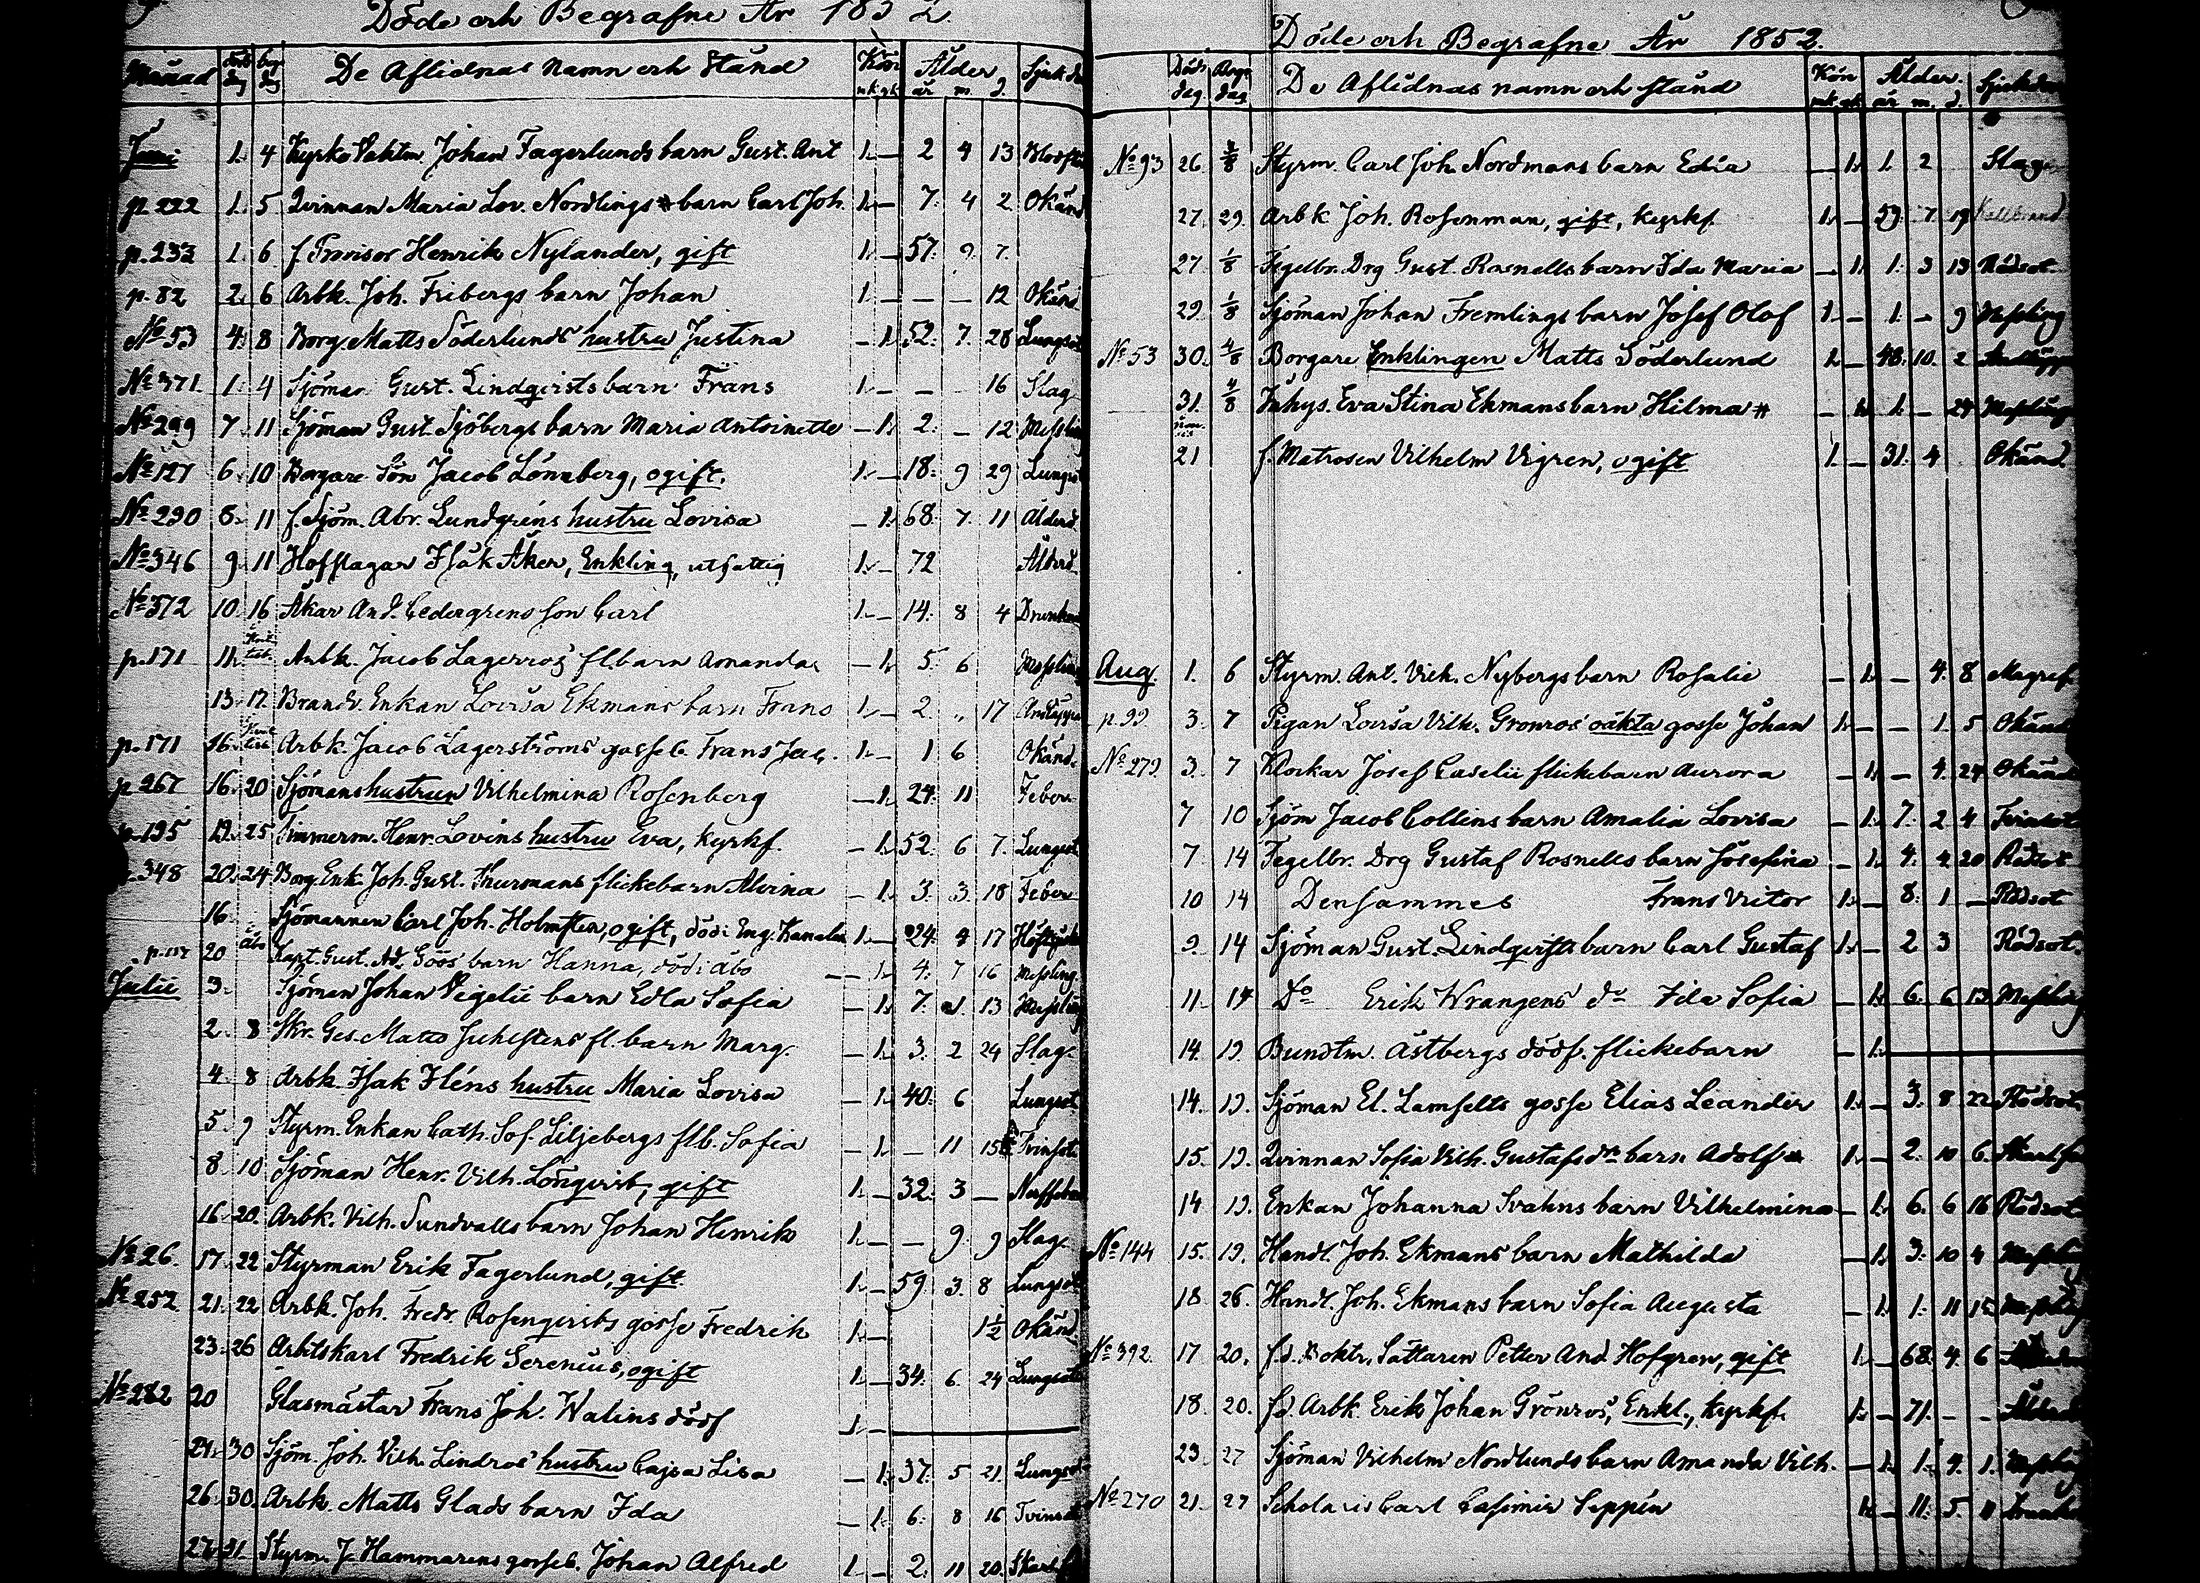 Döde och Begrafne År 1852
Månad död dag begr dag De Aflidnas Namn och Stånd Kön mk. qk. Ålder år m. d. Sjukd
Juni 1. 4 Kyrko Vaktm. Johan Fagerlunds barn Gust. Ant 1. — 2 4 13
p. 222 1. 5 Qvinnan Maria Lov. Nordlings barn Carl Joh. 1. — 7. 4 2 Okänd
p. 233 1. 6 f. Provisor Henrik Nylander, gift 1. — 57. 9 7.
p. 82 2. 6 Arbk. Joh. Fribergs barn Johan 1. — — — 12 Okänd
No 53 4. 8 Borg. Matts Söderlunds hustru Justina — 1. 52. 7. 28 Lungsot
No 371 1. 4 Sjöman Gust. Lindqvists barn Frans 1. — — — 16 Slag
No 299 7. 11 Sjöman Gust. Sjöbergs barn Maria Antoinette — 1. 2. — 12 Messling
No 127 6. 10 Borgare Son Jacob Lönnberg, ogift. 1. — 18. 9 29 Lungsot
No 290 8. 11 f. Sjöm. Abr. Lundgréns hustru Lovisa — 1. 68. 7. 11 Ålderd.
No 346 9. 11 Hofslagar Isak Åker, Enkling, utfattig 1. — 72 Ålderd.
No 372 10. 16 Åkar And. Cedergrens son Carl 1. — 14. 8 4 Drunkn
p. 171 11. Arbk. Jacob Lagerros fl. barn Amanda — 1. 5. 6 Messling
13. 17. Brandv. Enkan Lovisa Ekmans barn Frans 1. — 2. „ 17 Andtäppa
p. 171 16. Arbk. Jacob Lagerströms gosseb. Frans Jac. 1. — 1 6 Okänd.
p. 267 16. 20 Sjömanshustrun Vilhelmina Rosenberg — 1. 24. 11 Feber
p. 195 19. 25 Timmerm. Henr. Lovéns hustru Eva, kyrkf. — 1. 52. 6 7. Lungsot
348 20. 24 Borg. Enk. Joh. Gust. Thurmans flickebarn Alvina — 1. 3. 3. 18 Feber
16. Sjömannen Carl Joh. Holmsten, ogift, död i Eng. Kanalen 1. — 24. 4 17
20 i Åbo Kapt. Gust. Ad. Göös barn Hanna, död i Åbo — 1. 4. 7 16 Messling.
Julii 3. Sjöman Johan Vigelii barn Edla Sofia — 1. 7. 13 Messling
2. 8 Skr. Ges. Matts Juhlstens fl. barn Marg. — 1. 3. 2 24 Slag.
4. 8 Arbk. Isak Iléns hustru Maria Lovisa — 1. 40. 6 Lungsot
5. 9 Styrm. Enkan Cath. Sof. Liljebergs flb. Sofia — 1. — 11 15 Tvinsot.
8. 10 Sjöman Henr. Vilh. Lönqvist, gift 1. — 32. 3 —
16. 20. Arbk. Vilh. Sundvalls barn Johan Henrik 1. — — 9. 9 Slag.
No 26. 17. 22 Styrman Erik Fagerlund, gift. 1. — 59. 3. 8 Lungsot
No 252 21. 22 Arbk. Joh. Fredr. Rosenqvists gosse Fredrik 1. — 1½ Okänd
23. 26 Arbetskarl Fredrik Serenius, ogift 1. — 34. 6. 24 Lungsot
No 282 20 Glasmästar Frans Joh. Walins dödf 1. —
24. 30 Sjöm. Joh. Vilh. Lindros' hustru Cajsa Lisa — 1. 37. 5 21. Lungsot
26. 30. Arbk. Matts Glads barn Ida — 1. 6. 8 16 Tvinsot
27. 31. Styrm. J. Hammarens gosseb. Johan Alfred 1. — 2. 11 20. Skarl.f
Döde och Begrafne År 1852.
Döds dag Begr. dag De Aflidnas namn och stånd Kön mk. qk. Ålder. år m. d. Sjukdom
No 93 26. 3/8 Styrm. Carl Joh. Nordmans barn Edia — 1. 1. 2 Slag
27. 29. Arbk Joh. Rosenman, gift, kyrkf. 1. — 59. 7 19 Kallbrand
27. 1/8 Tegelbr. Drg Gust. Rosnells barn Ida Maria — 1. 1. 3 13 Rödsot.
29. 1/8 Sjöman Johan Fremlings barn Josef Olof 1. — 1. — 9 Messling
No 53 30. 4/8 Borgare Enklingen Matts Söderlund 1. — 48. 10. 2 Andtäppa
31. 4/8 Inhys. Eva Stina Ekmans barn Hilma — 1. 1. — 24 Messling
21 f. Matrosen Vilhelm Vigren, ogift 1. — 31. 4 Okänd.
Aug. 1. 6 Styrm. Ant. Vilh. Nybergs barn Rosalie — 1. — 4. 8 Magref
p. 99. 3. 7 Pigan Lovisa Vilh. Grönros' oäkta gosse Johan 1. — — 1. 5 Okänd
No 279. 3. 7 Klockar Josef Caselii flickebarn Aurora — 1. — 4. 24 Okänd
7 10 Sjöm Jacob Collins barn Amalia Lovisa — 1. 7. 2 4 Tvinsot
7. 14 Tegelbr. Drg Gustaf Rosnells barn Josefina — 1. 4. 4 20 Rödsot
10 14 Densammes Frans Victor 1. — 8. 1 — Rödsot
9. 14 Sjöman Gust. Lindqvists barn Carl Gustaf 1. — 2 3 Rödsot.
11. 14 Do Erik Wrangens do Ida Sofia — 1. 6. 6 13 Messling
14. 19. Bundtm. Åstbergs dödf. flickebarn — 1.
14. 19. Sjöman El. Lamsells gosse Elias Leander 1. — 3. 8 22 Rödsot.
15. 19. Qvinnan Sofia Vilh. Gustafsdr barn Adolf 1. — 2. 10 6.
14. 19. Enkan Johanna Svahns barn Vilhelmina — 1. 6. 6 16 Rödsot
No 144 15. 19. Handl. Joh. Ekmans barn Mathilda — 1. 3. 10 4 Messling
18. 26. Handl. Joh. Ekmans barn Sofia Augusta — 1. 1. 11 15 Messling
No 392. 17 20. f.d. Boktr. Sättaren Petter And. Hofgren, gift 1. — 68. 4. 6
18. 20. f.d. Arbk. Erik Johan Grönros, Enkl., kyrkf. 1. — 71. — — Ålderd
23. 27 Sjöman Vilhelm Nordlunds barn Amanda Vilh. — 1. 1. 4. 1. Messling
No 270 21. 27 Scholaris Carl Casimir Seppén 1. — 11. 5. 11